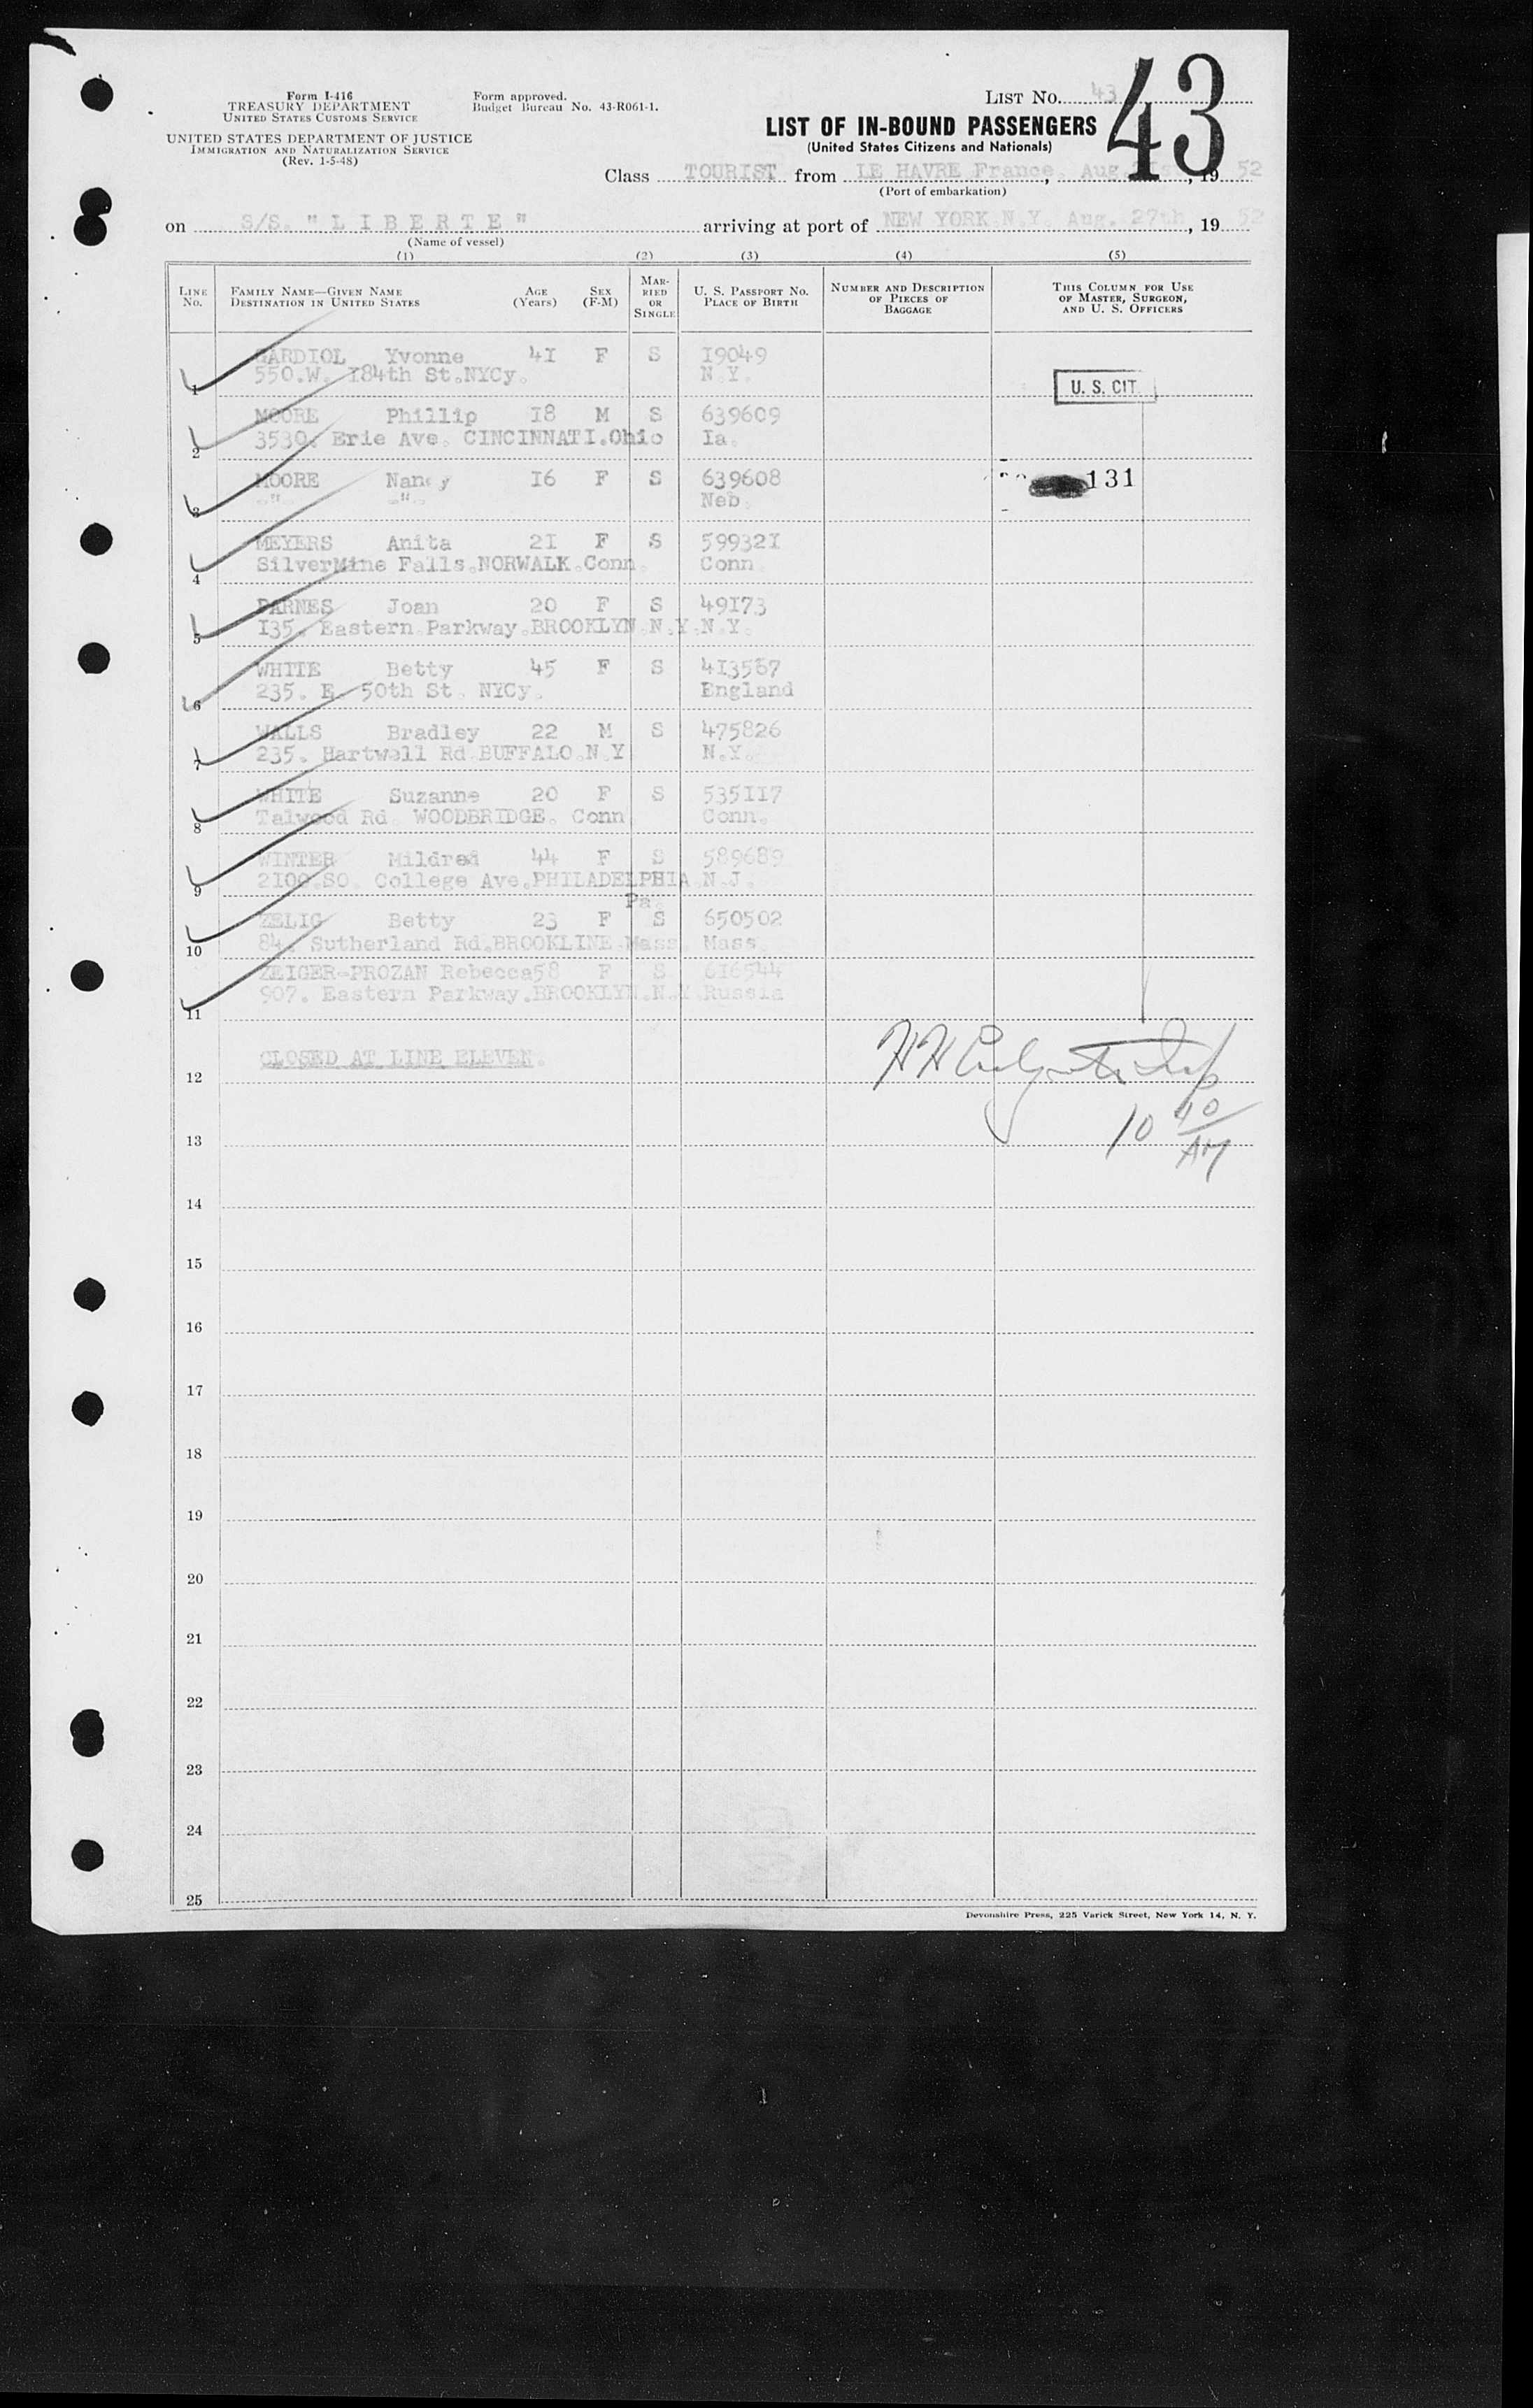 Form I-416
TREASURY DEPARTMENT
UNITED STATES CUSTOMS SERVICE
UNITED STATES DEPARTMENT OF JUSTICE
IMMIGRATION AND NATURALIZATION SERVICE
(Rev. 1-5-48)
Form approved.
Budget Bureau No. 43-R061-1.
LIST No. 43
43
LIST OF IN-BOUND PASSENGERS
(United States Citizens and Nationals)
Class TOURIST from LE HAVRE France, Aug. 21st, 19 52
(Port of embarkation)
on S/S. "L I B E R T E" arriving at port of NEW YORK N.Y. Aug. 27th, 19 52
(Name of vessel)
(1) (2) (3) (4) (5)
LINE No. FAMILY NAME—GIVEN NAME DESTINATION IN UNITED STATES AGE (Years) SEX (F-M) MARRIED OR SINGLE U. S. PASSPORT No. PLACE OF BIRTH NUMBER AND DESCRIPTION OF PIECES OF BAGGAGE THIS COLUMN FOR USE OF MASTER, SURGEON, AND U. S. OFFICERS
GARDIOL Yvonne 41 F S 19049
1 550.W. 184th St.NYCy. N.Y. U. S. CIT.
MOORE Phillip 18 M S 639609
2 3530. Erie Ave. CINCINNATI.Ohio Ia.
MOORE Nancy 16 F S 639608 131
3 -"- -"- Neb.
MEYERS Anita 21 F S 599321
4 SilverMine Falls.NORWALK.Conn. Conn.
PARNES Joan 20 F S 49173
5 135. Eastern Parkway.BROOKLYN.N.Y. N.Y.
WHITE Betty 45 F S 413567
6 235. E. 50th St. NYCy. England
WALLS Bradley 22 M S 475826
7 235. Hartwell Rd BUFFALO.N.Y N.Y.
WHITE Suzanne 20 F S 535117
8 Talwood Rd. WOODBRIDGE. Conn Conn.
WINTER Mildred 44 F S 589689
9 2100.SO. College Ave.PHILADELPHIA Pa. N.J.
ZELIG Betty 23 F S 650502
10 84. Sutherland Rd.BROOKLINE Mass. Mass.
ZEIGER-PROZAN Rebecca 58 F S 616544
11 907. Eastern Parkway.BROOKLYN.N.Y Russia
12 CLOSED AT LINE ELEVEN.
10 10/AM
13
14
15
16
17
18
19
20
21
22
23
24
25
Devonshire Press, 225 Varick Street, New York 14, N. Y.